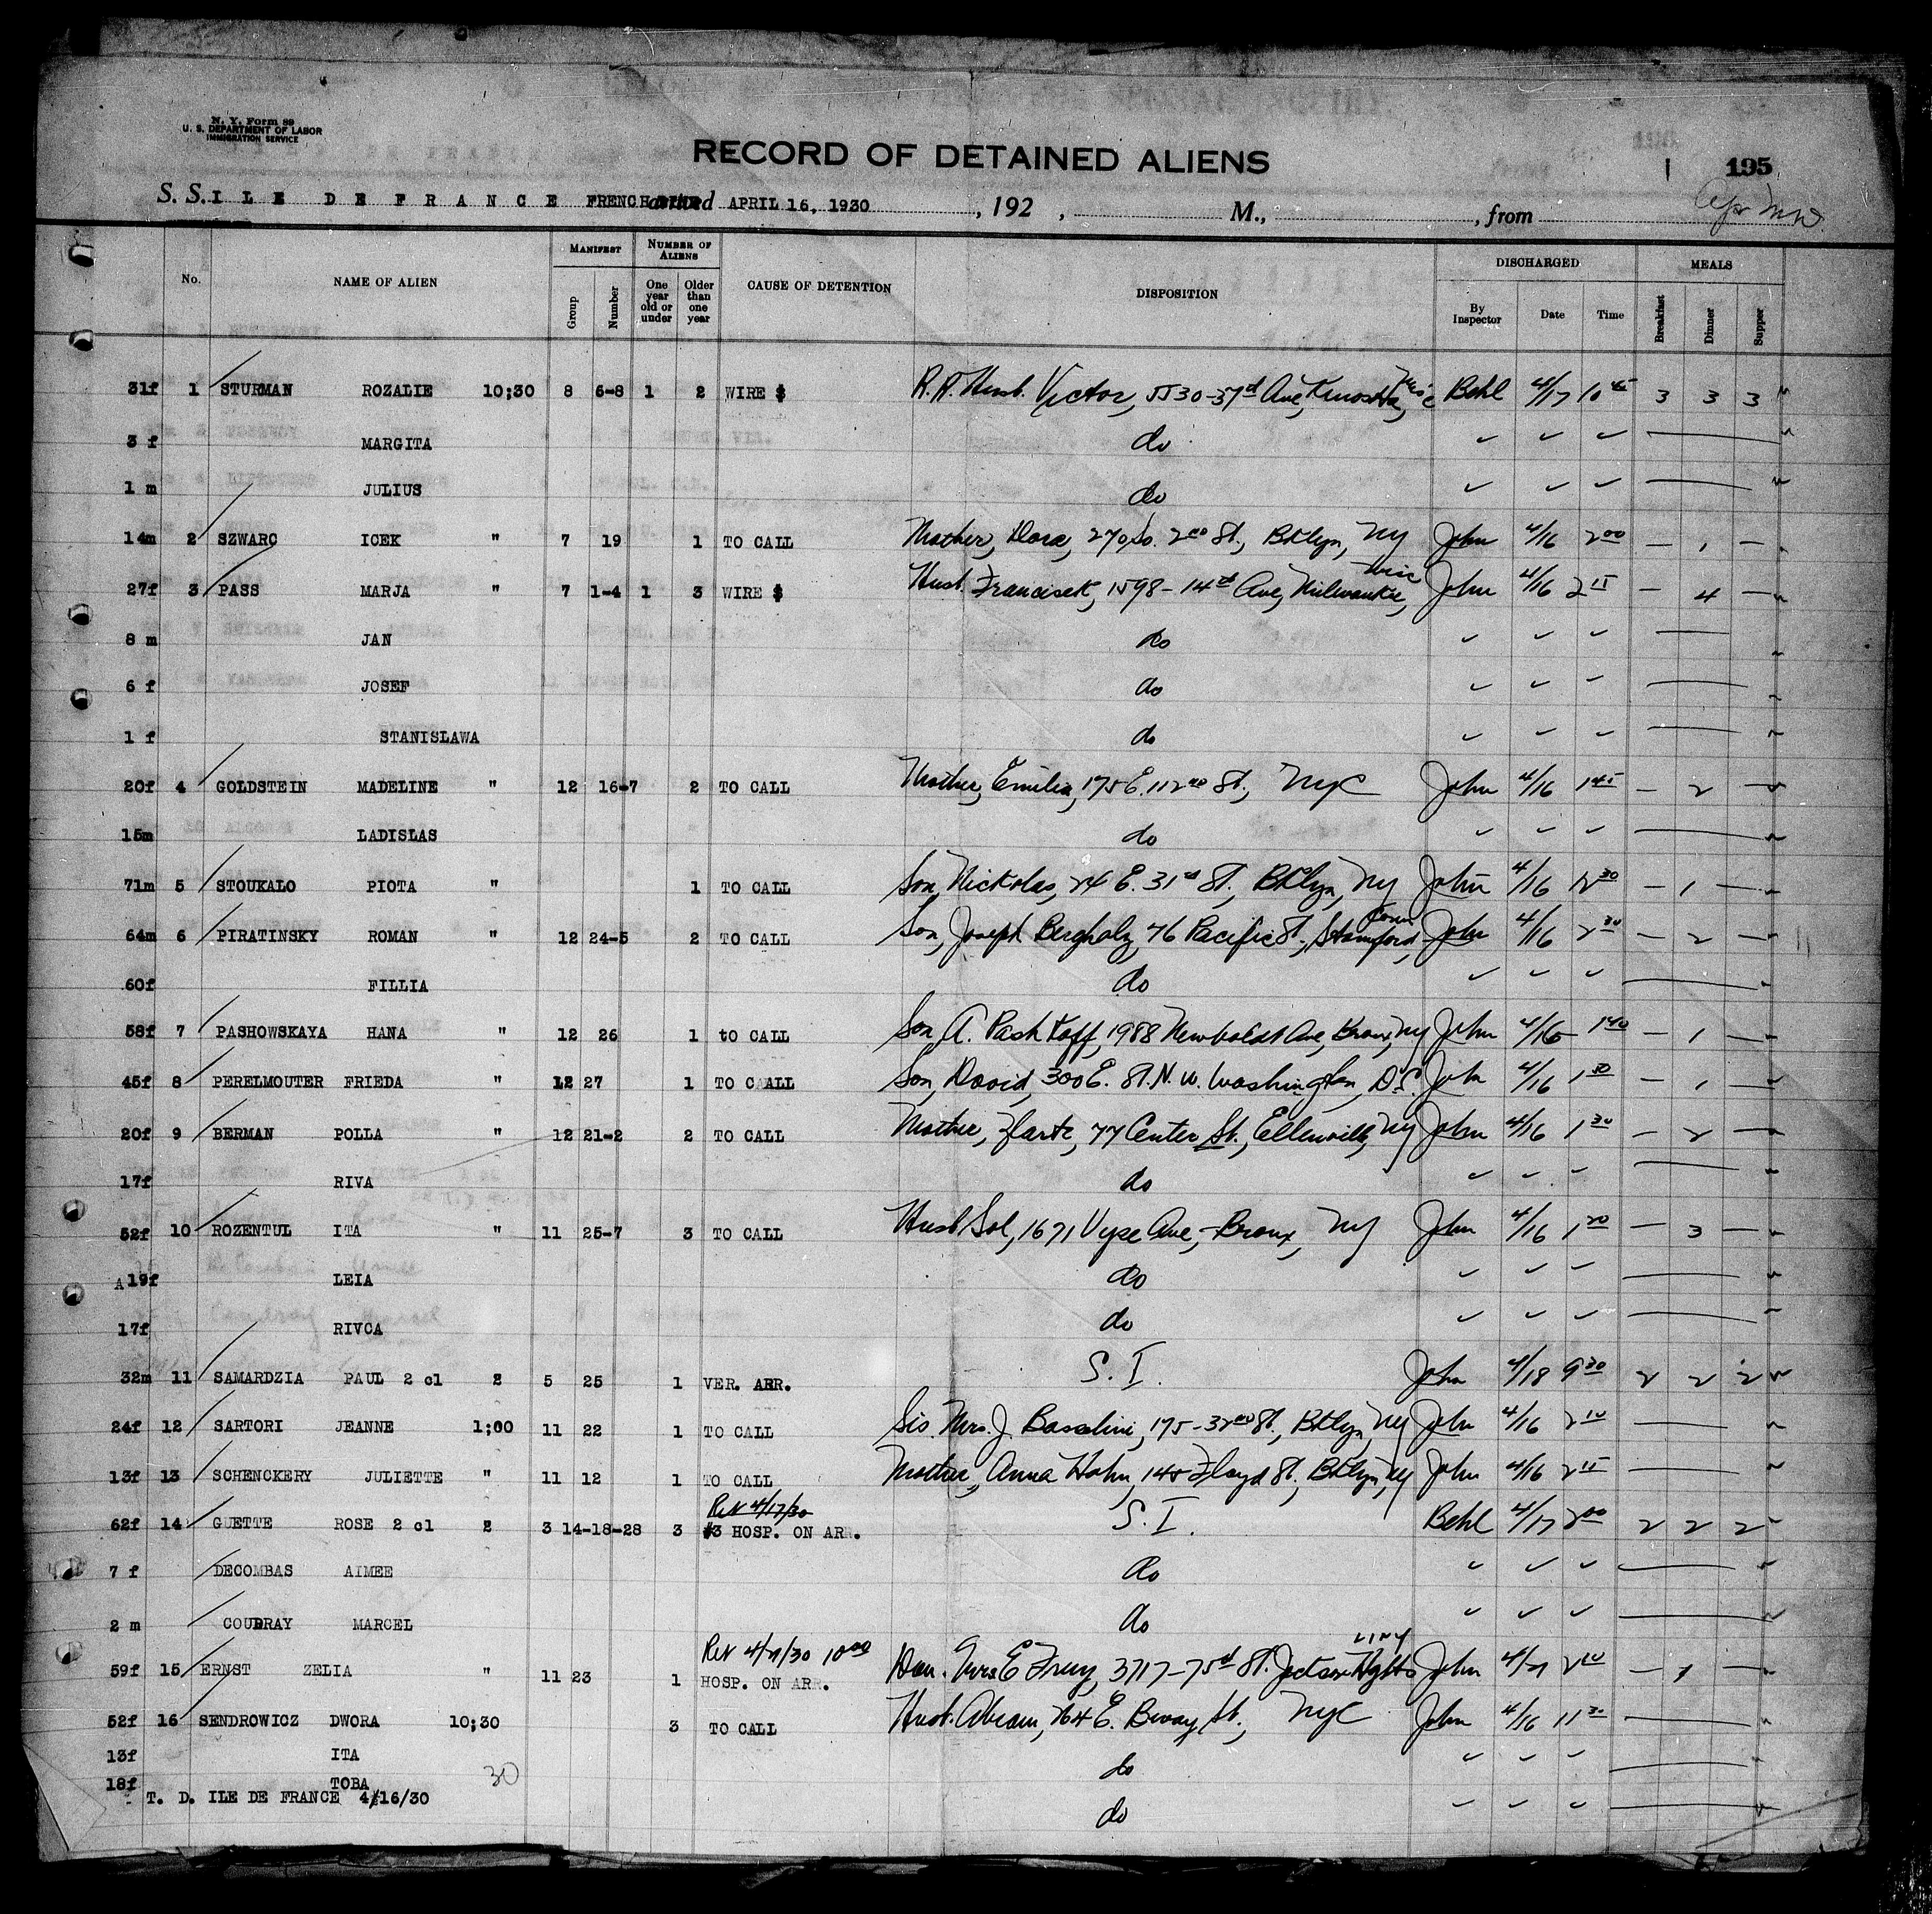 N. Y. Form 89
U. S. DEPARTMENT OF LABOR
IMMIGRATION SERVICE
RECORD OF DETAINED ALIENS
195
S. S. ILE DE FRANCE FRENCH arrived APRIL 16, 1930 , 192 , M., , from
No. NAME OF ALIEN MANIFEST Group Number NUMBER OF ALIENS One year old or under Older than one year CAUSE OF DETENTION DISPOSITION DISCHARGED By Inspector Date Time MEALS Breakfast Dinner Supper
31f 1 STURMAN ROZALIE 10;30 8 6-8 1 2 WIRE $ R.R. Husb. Victor, 5530-37th Ave, Kenosha, Wisc Behl 4/17 10 45 3 3 3
3 f MARGITA do
1 m JULIUS do
14m 2 SZWARC ICEK " 7 19 1 TO CALL Mother, Dora, 270 So. 2nd St., Bklyn, NY John 4/16 2 00 - 1 -
27f 3 PASS MARJA " 7 1-4 1 3 WIRE $ Husb. Francisek, 1598-14th Ave, Milwaukie, Wisc John 4/16 2 15 - 4 -
8 m JAN do
6 f JOSEF do
1 f STANISLAWA do
20f 4 GOLDSTEIN MADELINE " 12 16-7 2 TO CALL Mother, Emilia, 175 E. 112nd St., NYC John 4/16 1 45 - 2 -
15m LADISLAS do
71m 5 STOUKALO PIOTA " 1 TO CALL Son, Nickolas, 24 E. 31st St., Bklyn, NY John 4/16 12 30 - 1 -
64m 6 PIRATINSKY ROMAN " 12 24-5 2 TO CALL Son, Joseph Bergholz, 76 Pacific St., Stamford, Conn John 4/16 2 30 - 2 -
60f FILLIA do
58f 7 PASHOWSKAYA HANA " 12 26 1 tO CALL Son, A. Pashkoff, 1988 Newbold Ave, Bronx, NY John 4/16 1 40 - 1 -
45f 8 PERELMOUTER FRIEDA " 12 27 1 TO CAALL Son, David, 300 E. St. N.W. Washington, D.C. John 4/16 1 50 - 1 -
20f 9 BERMAN POLLA " 12 21-2 2 TO CALL Mother, Zlarte, 77 Center St., Ellenville, NY John 4/16 1 30 - 2 -
17f RIVA do
52f 10 ROZENTUL ITA " 11 25-7 3 TO CALL Husb. Sol, 1671 Vyse Ave, Bronx, NY John 4/16 1 20 - 3 -
A19f LEIA do
17f RIVCA do
32m 11 SAMARDZIA PAUL 2 cl 2 5 25 1 VER. ARR. S. I. John 4/18 9 30 2 2 2
24f 12 SARTORI JEANNE 1;00 11 22 1 TO CALL Sis. Mrs. J. Basolini, 175-32nd St., Bklyn, NY John 4/16 2 10
13f 13 SCHENCKERY JULIETTE " 11 12 1 TO CALL Mother, Anna Hahn, 145 Floyd St., Bklyn, NY John 4/16 2 15
Rel 4/17/30
62f 14 GUETTE ROSE 2 cl 2 3 14-18-28 3 #3 HOSP. ON ARR. S. I. Behl 4/17 2 00 2 2 2
7 f DECOMBAS AIMEE do
2 m COUDRAY MARCEL do
59f 15 ERNST ZELIA " 11 23 1 HOSP. ON ARR. Mrs E Frey, 3717-75th St. Jackson Hghts LINY John 2 10 - 1 -
52f 16 SENDROWICZ DWORA 10;30 3 TO CALL Husb. Abram, 764 E. Bway St., NYC John 4/16 11 30
13f ITA do
18f TOBA 30 do
T. D. ILE DE FRANCE 4/16/30